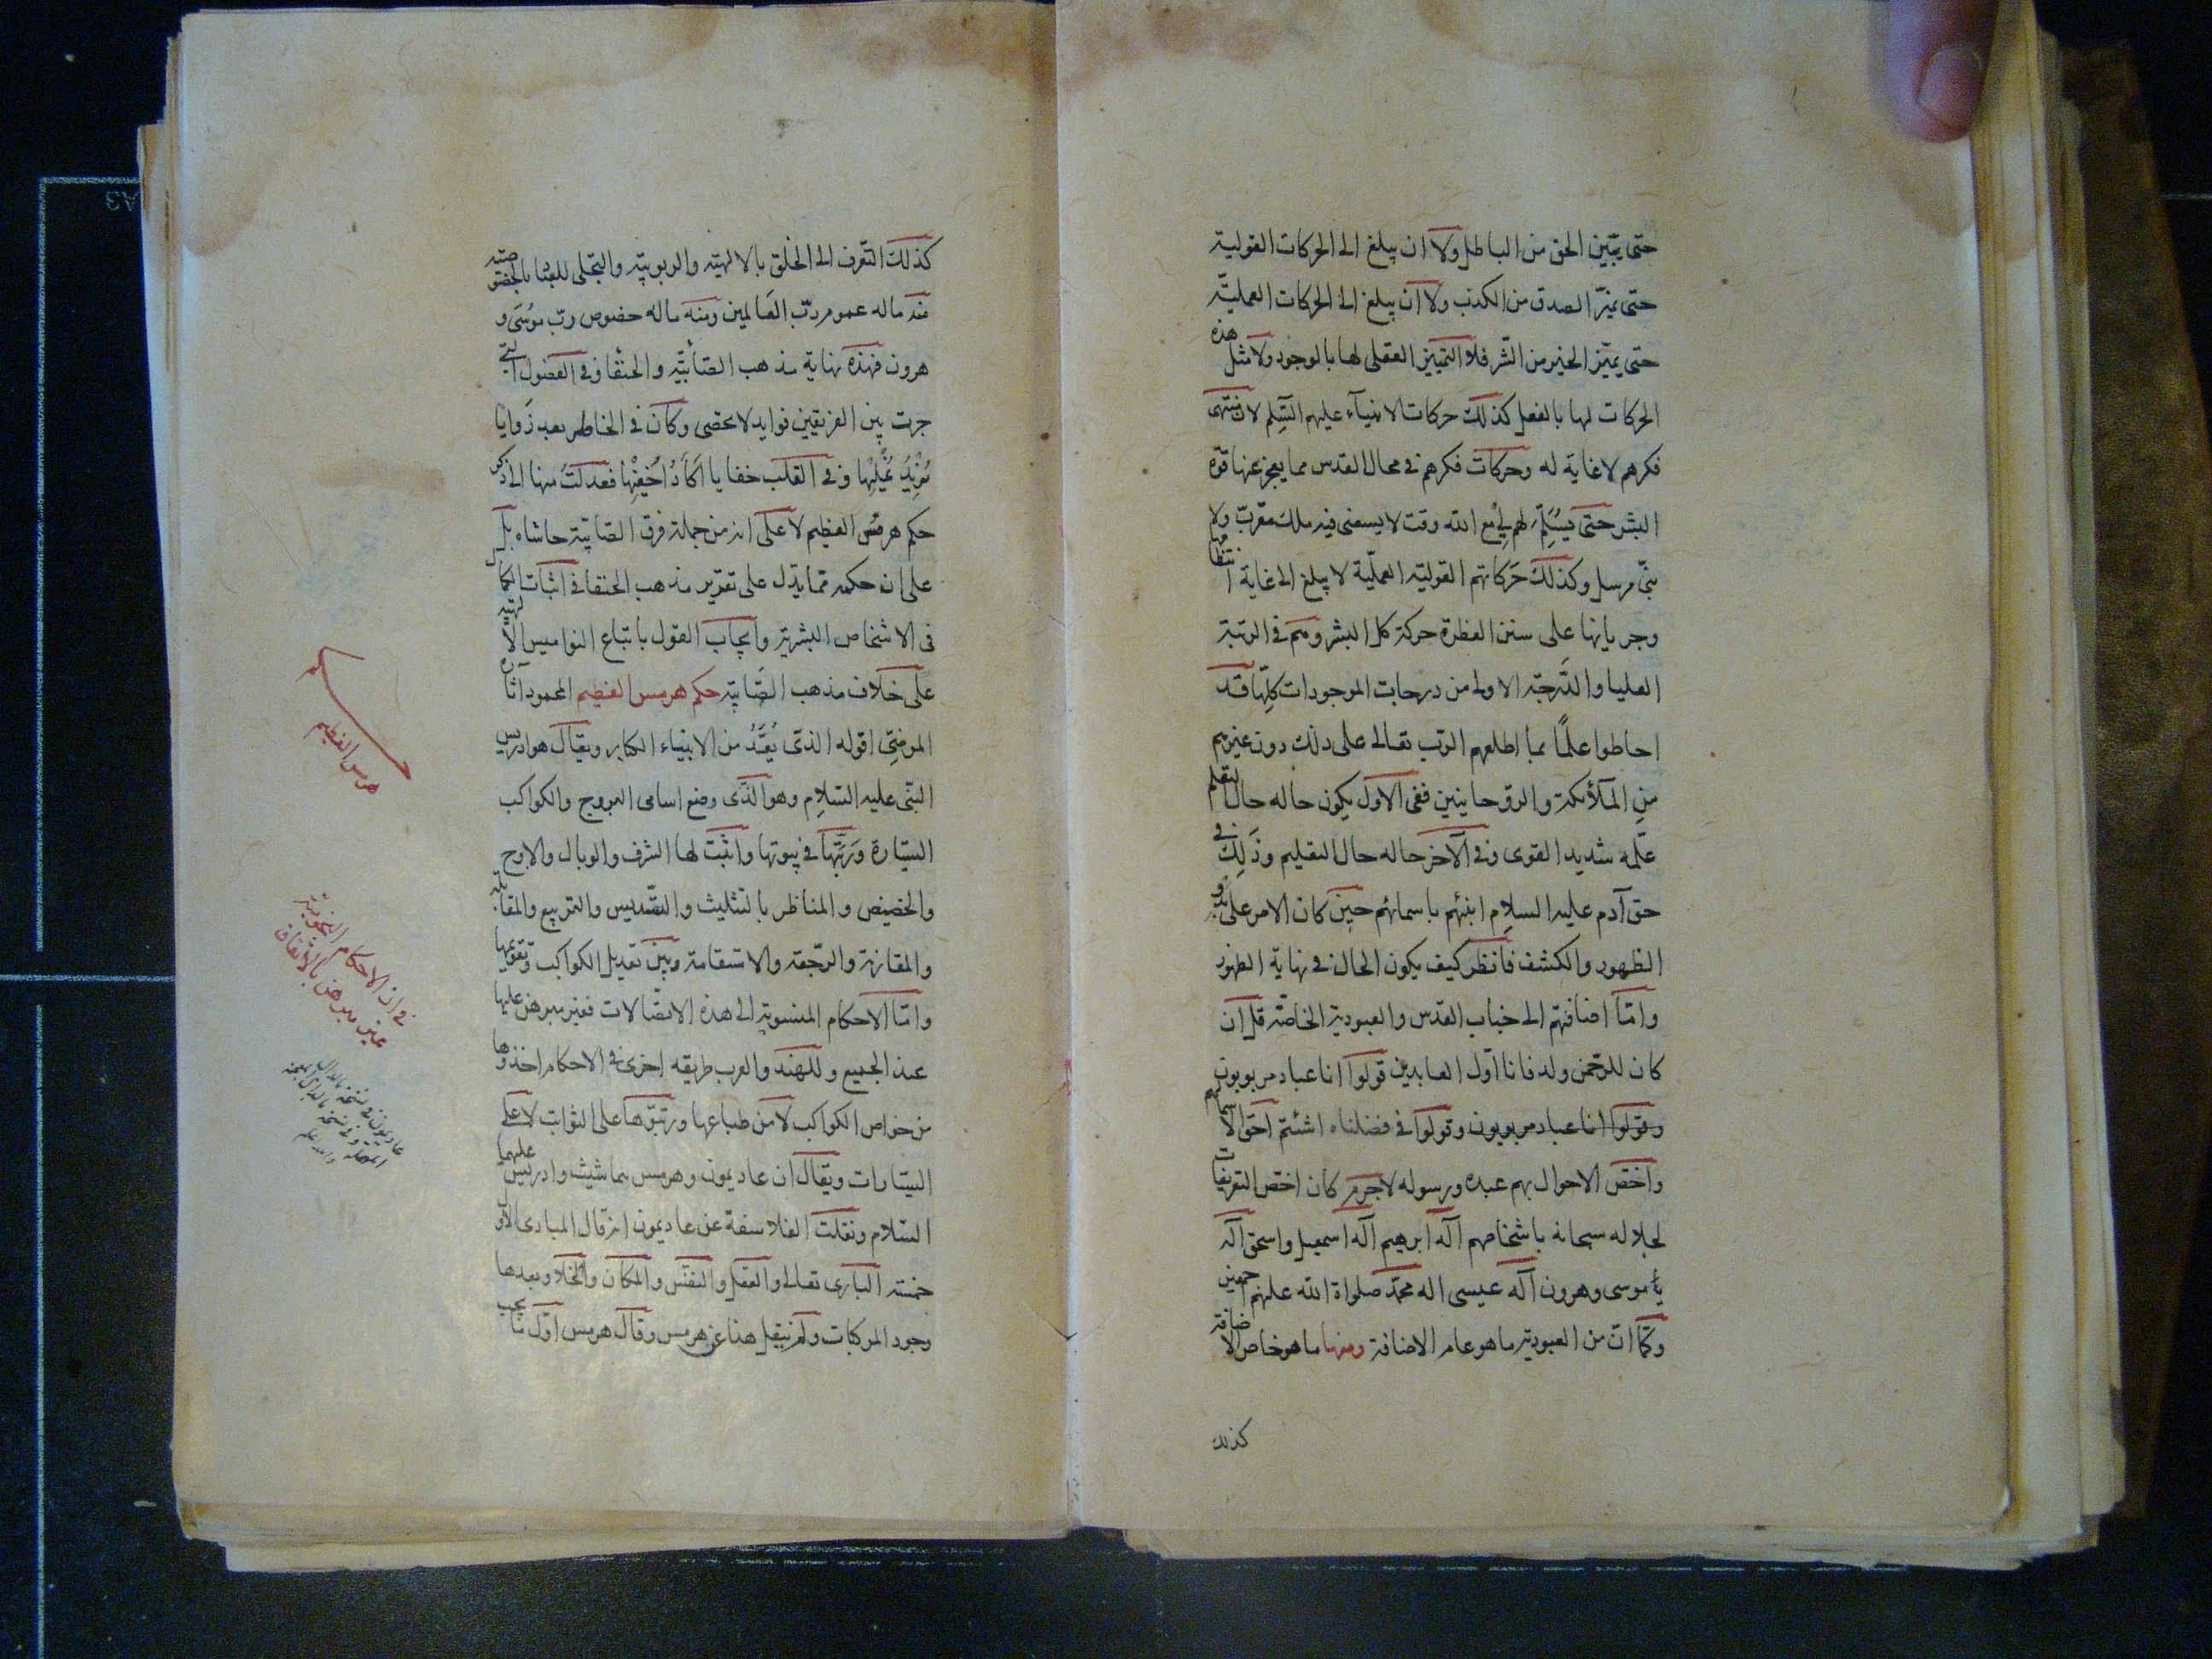 حتى يتبين الحق من الباطل ولا ان يبلغ الى الحركات القولية
حتى يميز الصدق من الكذب ولا ان يبلغ الى الحركات العملية
حتى يميز الخير من الشر فلا التمييز العقلى لها بالوجود ولا مثل هذه
الحركات لها بالفعل كذلك حركات الانبياء عليهم السلم لان منتهى
فكرهم لا غاية له وحركات فكرهم فى محال القدس مما يعجز عنها قوة
البشر حتى يسلم لهم لى مع الله وقت لا يسعنى فيه ملك مقرب ولا
نبى مرسل وكذلك حركاتهم القولية العملية لا يبلغ الى غاية انتظامها
وجريانها على سنن الفطرة حركة كل البشر وهم فى الرتبة
العليا والدرجة الاولى من درجات الموجودات كلها قد
احاطوا علما بما اطلعهم الرب تعالى على ذلك دون غيرهم
من الملائكة والروحانيين ففى الاول يكون حاله حال التعلم
علمه شديد القوى وفى الآخر حاله حال التعليم وذلك فى
حق آدم عليه السلام انبئهم باسمائهم حين كان الامر على بدو
الظهور والكشف فانظر كيف يكون الحال فى نهاية الظهور
واما اضافتهم الى جناب القدس والعبودية الخاصة قل ان
كان للرحمن ولد فانا اول العابدين قولوا انا عباد مربوبون
وقولوا انا عباد مربوبون وقولوا فى فضلنا ما شئتم احق الاسماء لهم
واخص الاحوال بهم عبده ورسوله لا جرم كان اخص التعريفات
لجلاله سبحانه باشخاصهم آله ابرهيم آله اسمعيل واسحق آله
موسى وهرون آله عيسى اله محمد صلواة الله عليهم اجمعين
وكما ان من العبودية ما هو عام الاضافة ومنها ما هو خاص الاضافة
كذلك
كذلك التعرف الى الخلق بالالهية والربوبية والتجلى للعباد بالخصوصية
منه ما له عموم رب العالمين ومنه ما له خصوص رب موسى و
هرون فهذه نهاية مذهب الصابئية والحنفا وفى الفصول التى
جرت بين الفريقين فوايد لا تحصى وكان فى الخاطر بعد زوايا
نريد نمليها وفى القلب خفايا اكاد اخفيها فعدلت منها الى ذكر
حكم هرمس العظيم لا على انه من جملة فرق الصابية حاشاه بل
على ان حكمه مما يدل على تقرير مذهب الحنفا فى اثبات الكمال
فى الاشخاص البشرية وايجاب القول باتباع النواميس الالهية
على خلاف مذهب الصابية حكم هرمس العظيم المحمود آثاره
المرضى اقوله الذى يعد من الانبياء الكبار ويقال هو ادريس
النبى عليه السلام وهو الذى وضع اسامى البروج والكواكب
السيارة ورتبها فى بيوتها واثبت لها الشرف والوبال والاوج
والحضيض والمناظر بالتثليث والتسديس والتربيع والمقابلة
والمقارنة والرجعة والاستقامة وبين تعديل الكواكب وتقويمها
واما الاحكام المنسوبة الى هذه الاتصالات فغير مبرهن عليها
عند الجميع وللهند والعرب طريقه اخرى فى الاحكام اخذوها
من خواص الكواكب لا من طبائعها ورتبوها على الثوابت لا على
السيارات ويقال ان عاديمون وهرمس هما شيث وادريس عليهما
السلام ونقلت الفلاسفة عن عاديمون انه قال المبادى الاول
خمسة البارى تعالى والعقل والنفس والمكان والخلا وبعدها
وجود المركبات ولم ينقل هذا عن هرمس وقال هرمس اول ما يجب
هرمس العظيم
فى ان الاحكام النجومية
غير مبرهن بالاتفاق
عاديمون فى نسخة بالدال
المهملة وفى نسخة بالذال المعجمة
والله اعلم